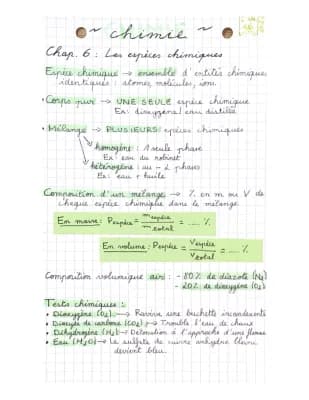 ~ chimie ~
Chap. 6 : Les espèces chimiques
Espèce chimique → ensemble d'entités chimiques
identiques : atomes, molécules, ions.
• Corps pur → UNE SEULE espèce chimique
Ex : dioxygène / eau distillée
• Mélange → PLUSIEURS espèces chimiques
homogène : 1 seule phase
Ex : eau du robinet
hétérogène : au - 2 phases
Ex : eau + huile
Composition d'un mélange → % en m ou V de
chaque espèce chimique dans le mélange.
En masse : Pespèce = mespèce / mtotal = ..... %
En volume : Pespèce = Vespèce / Vtotal = ..... %
Composition volumique air : - 80% de diazote (N2)
- 20% de dioxygène (O2)
Tests chimiques :
• Dioxygène (O2) → Ravive une buchette incandescente
• Dioxyde de carbone (CO2) → Trouble l'eau de chaux
• Dihydrogène (H2) → Détonation à l'approche d'une flamme
• Eau (H2O) → Le sulfate de cuivre anhydre blanc
devient bleu.